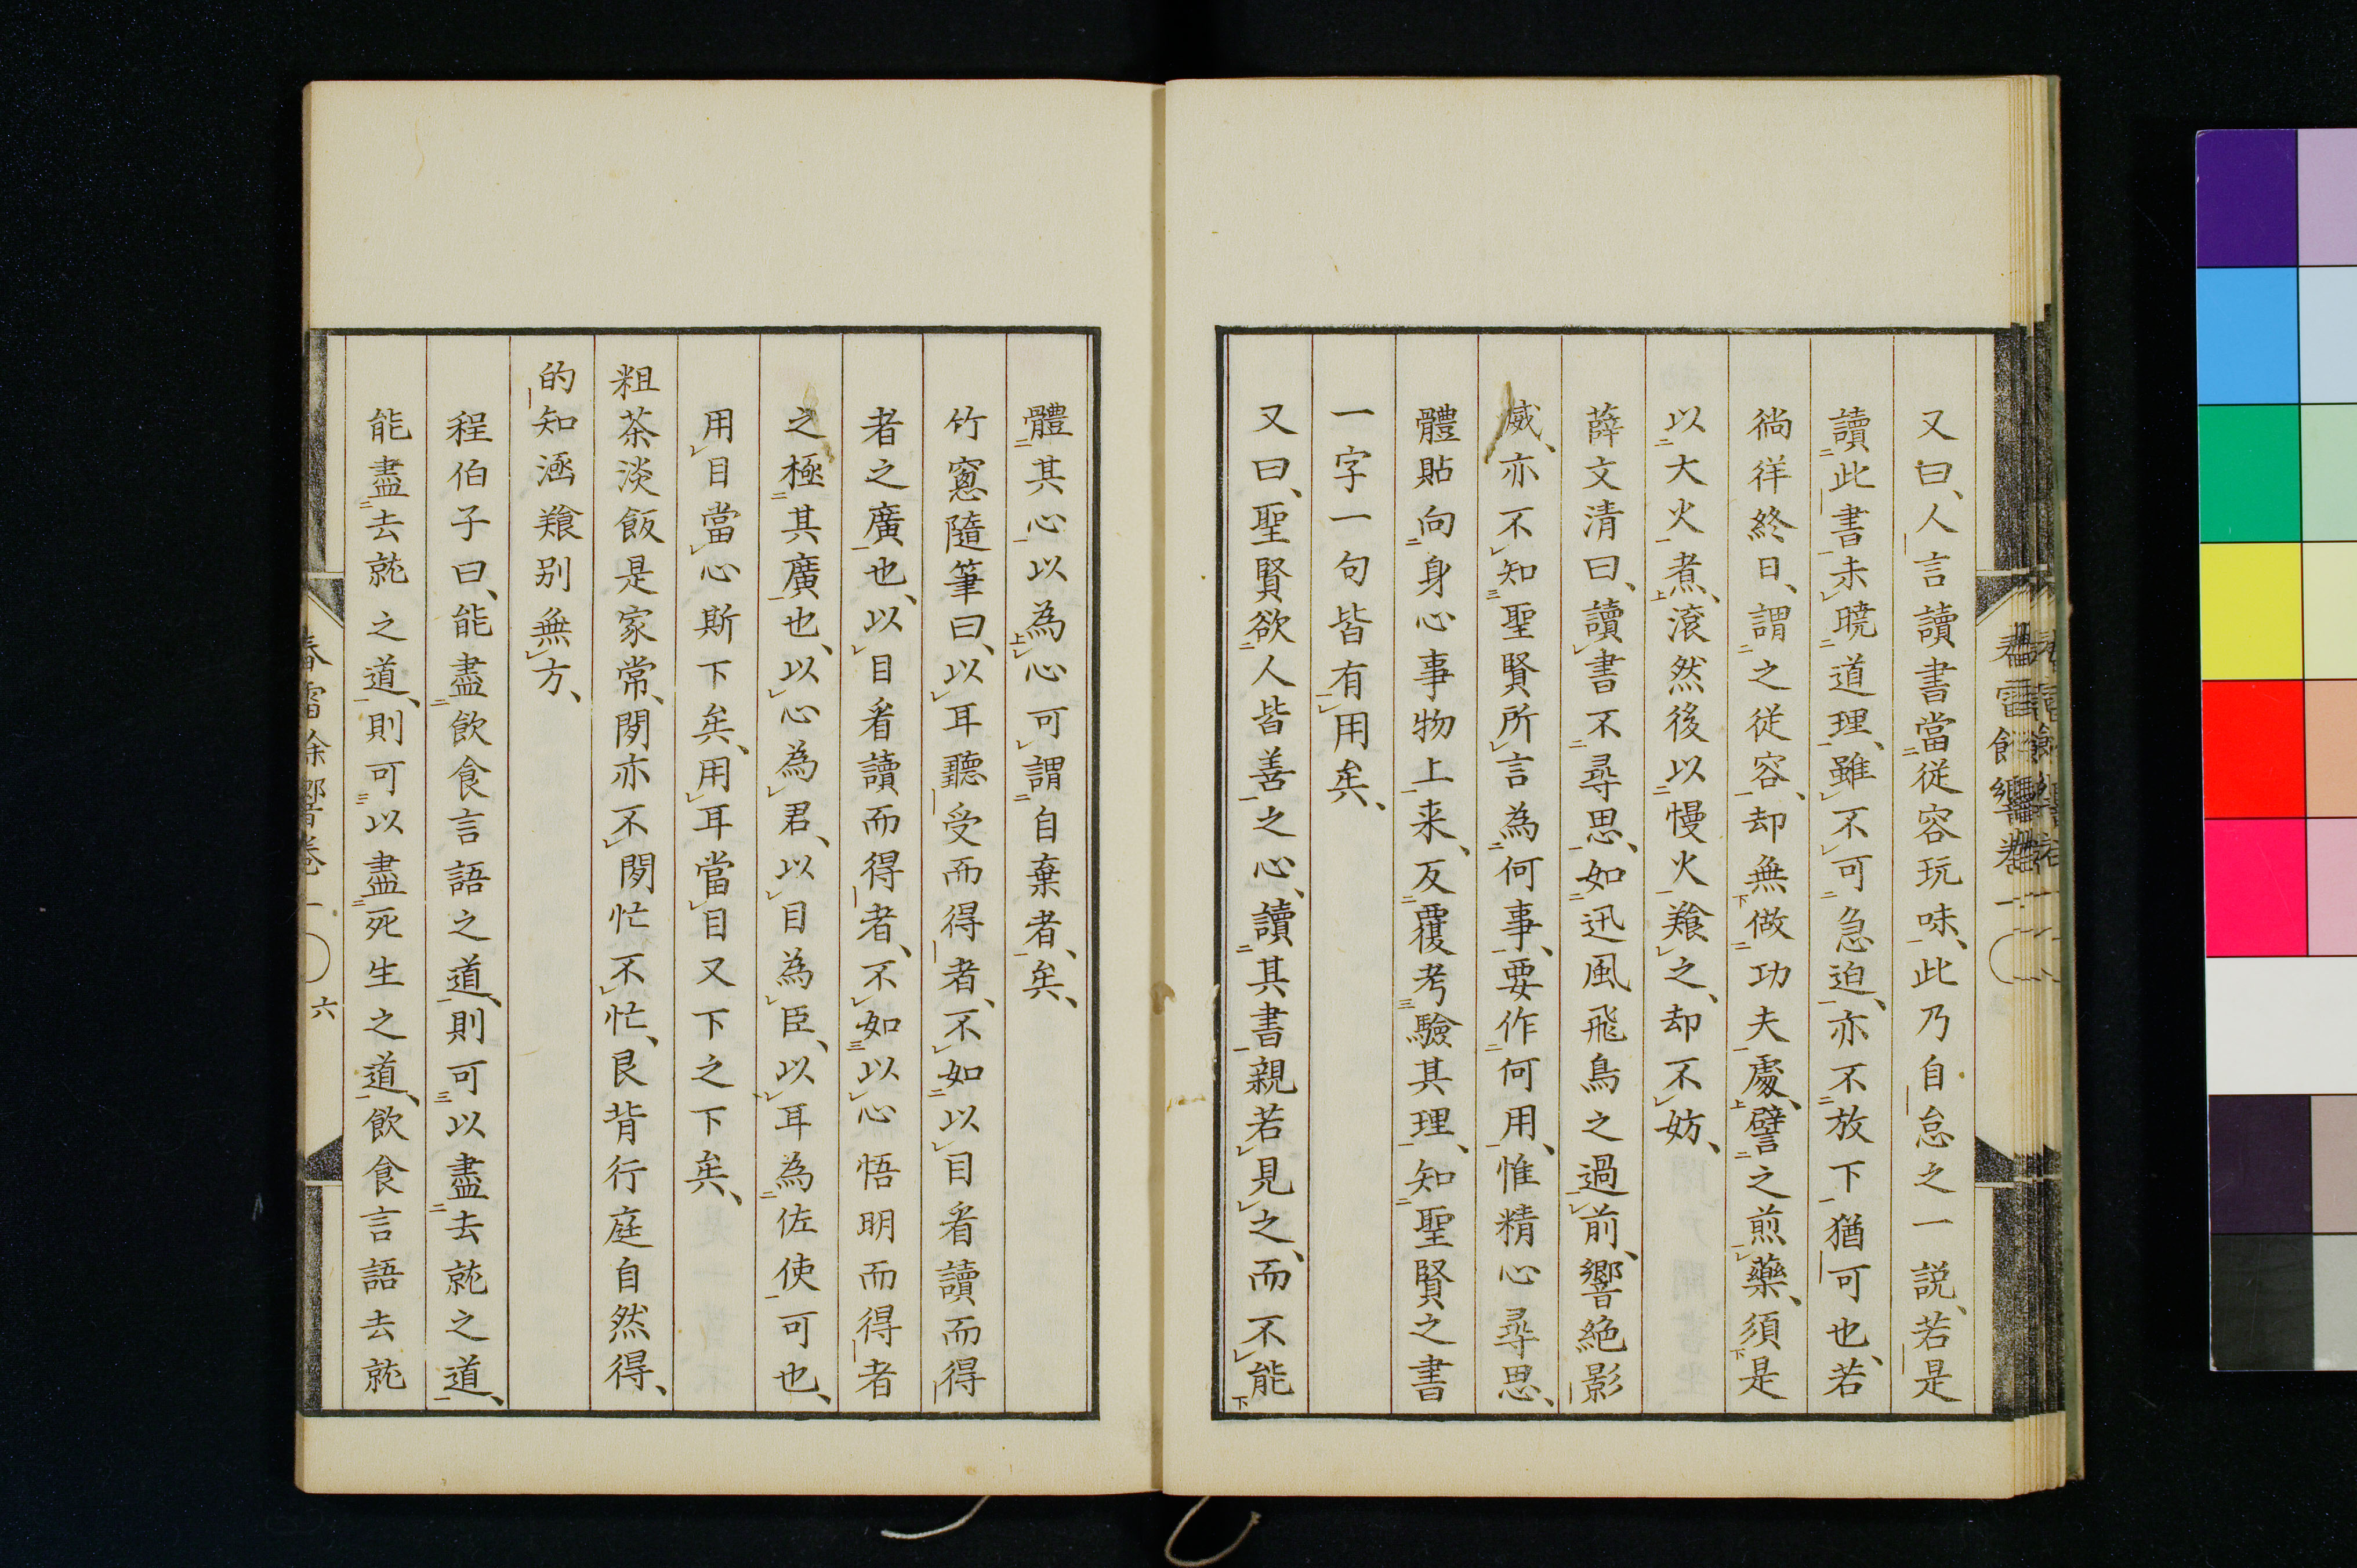 又曰、人言讀書當從容玩味、此乃自怠之一説、若是
讀此書未曉道理、雖不可急迫、亦不放下猶可也、若
徜徉終日、謂之從容、却無做功夫處、譬之煎藥、須是
以大火煮、滾然後以慢火養之、却不妨、
薛文清曰、讀書不尋思、如迅風飛鳥之過前、響絶影
滅、亦不知聖賢所言為何事、要作何用、惟精心尋思、
體貼向身心事物上来、反覆考驗其理、知聖賢之書
一字一句皆有用矣、
又曰、聖賢欲人皆善之心、讀其書親若見之、而不能
體其心以為心可謂自棄者矣、
竹窓隨筆曰、以耳聽受而得者、不如以目看讀而得
者之廣也、以目看讀而得者、不如以心悟明而得者
之極其廣也、以心為君、以目為臣、以耳為佐使可也、
用目當心斯下矣、用耳當目又下之下矣、
粗茶淡飯是家常、閒亦不閒忙不忙、艮背行庭自然得、
的知涵養別無方、
程伯子曰、能盡飲食言語之道、則可以盡去就之道、
能盡去就之道、則可以盡死生之道、飲食言語去就
春雷餘響卷一 六